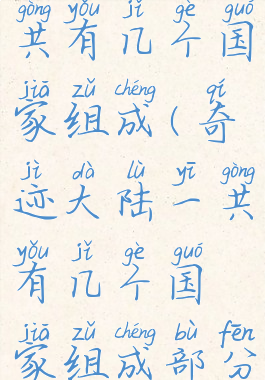 gòng yǒu jǐ gè guó
共有几个国
jiā zǔ chéng qí
家组成(奇
jì dà lù yī gòng
迹大陆一共
yǒu jǐ gè guó
有几个国
jiā zǔ chéng bù fēn
家组成部分